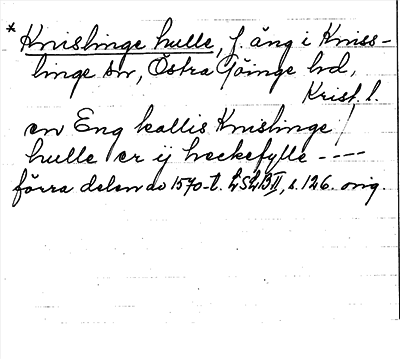 * Knislinge hulle, f. äng i Kniss-
linge sn, Östra Göinge hd,
Krist. l.
en Eng kallis Knislinge
hulle er ij heckefylle ----
förra delen av 1570-t. LSLB II, s. 126. orig.